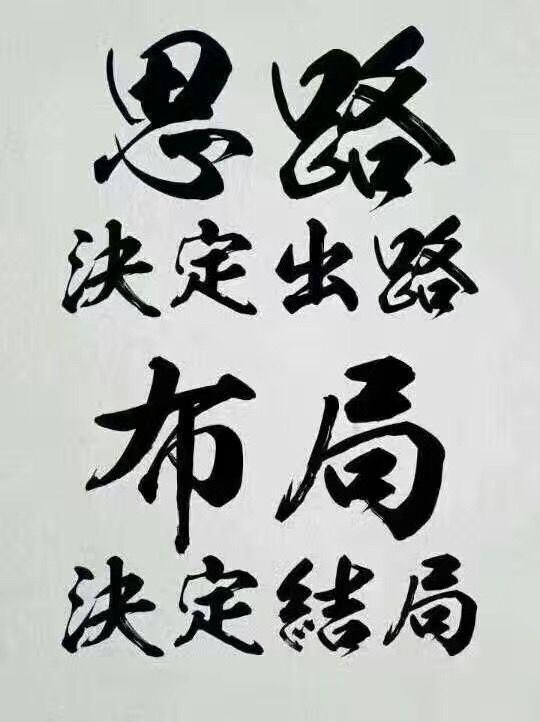 思路
決定出路
布局
決定結局